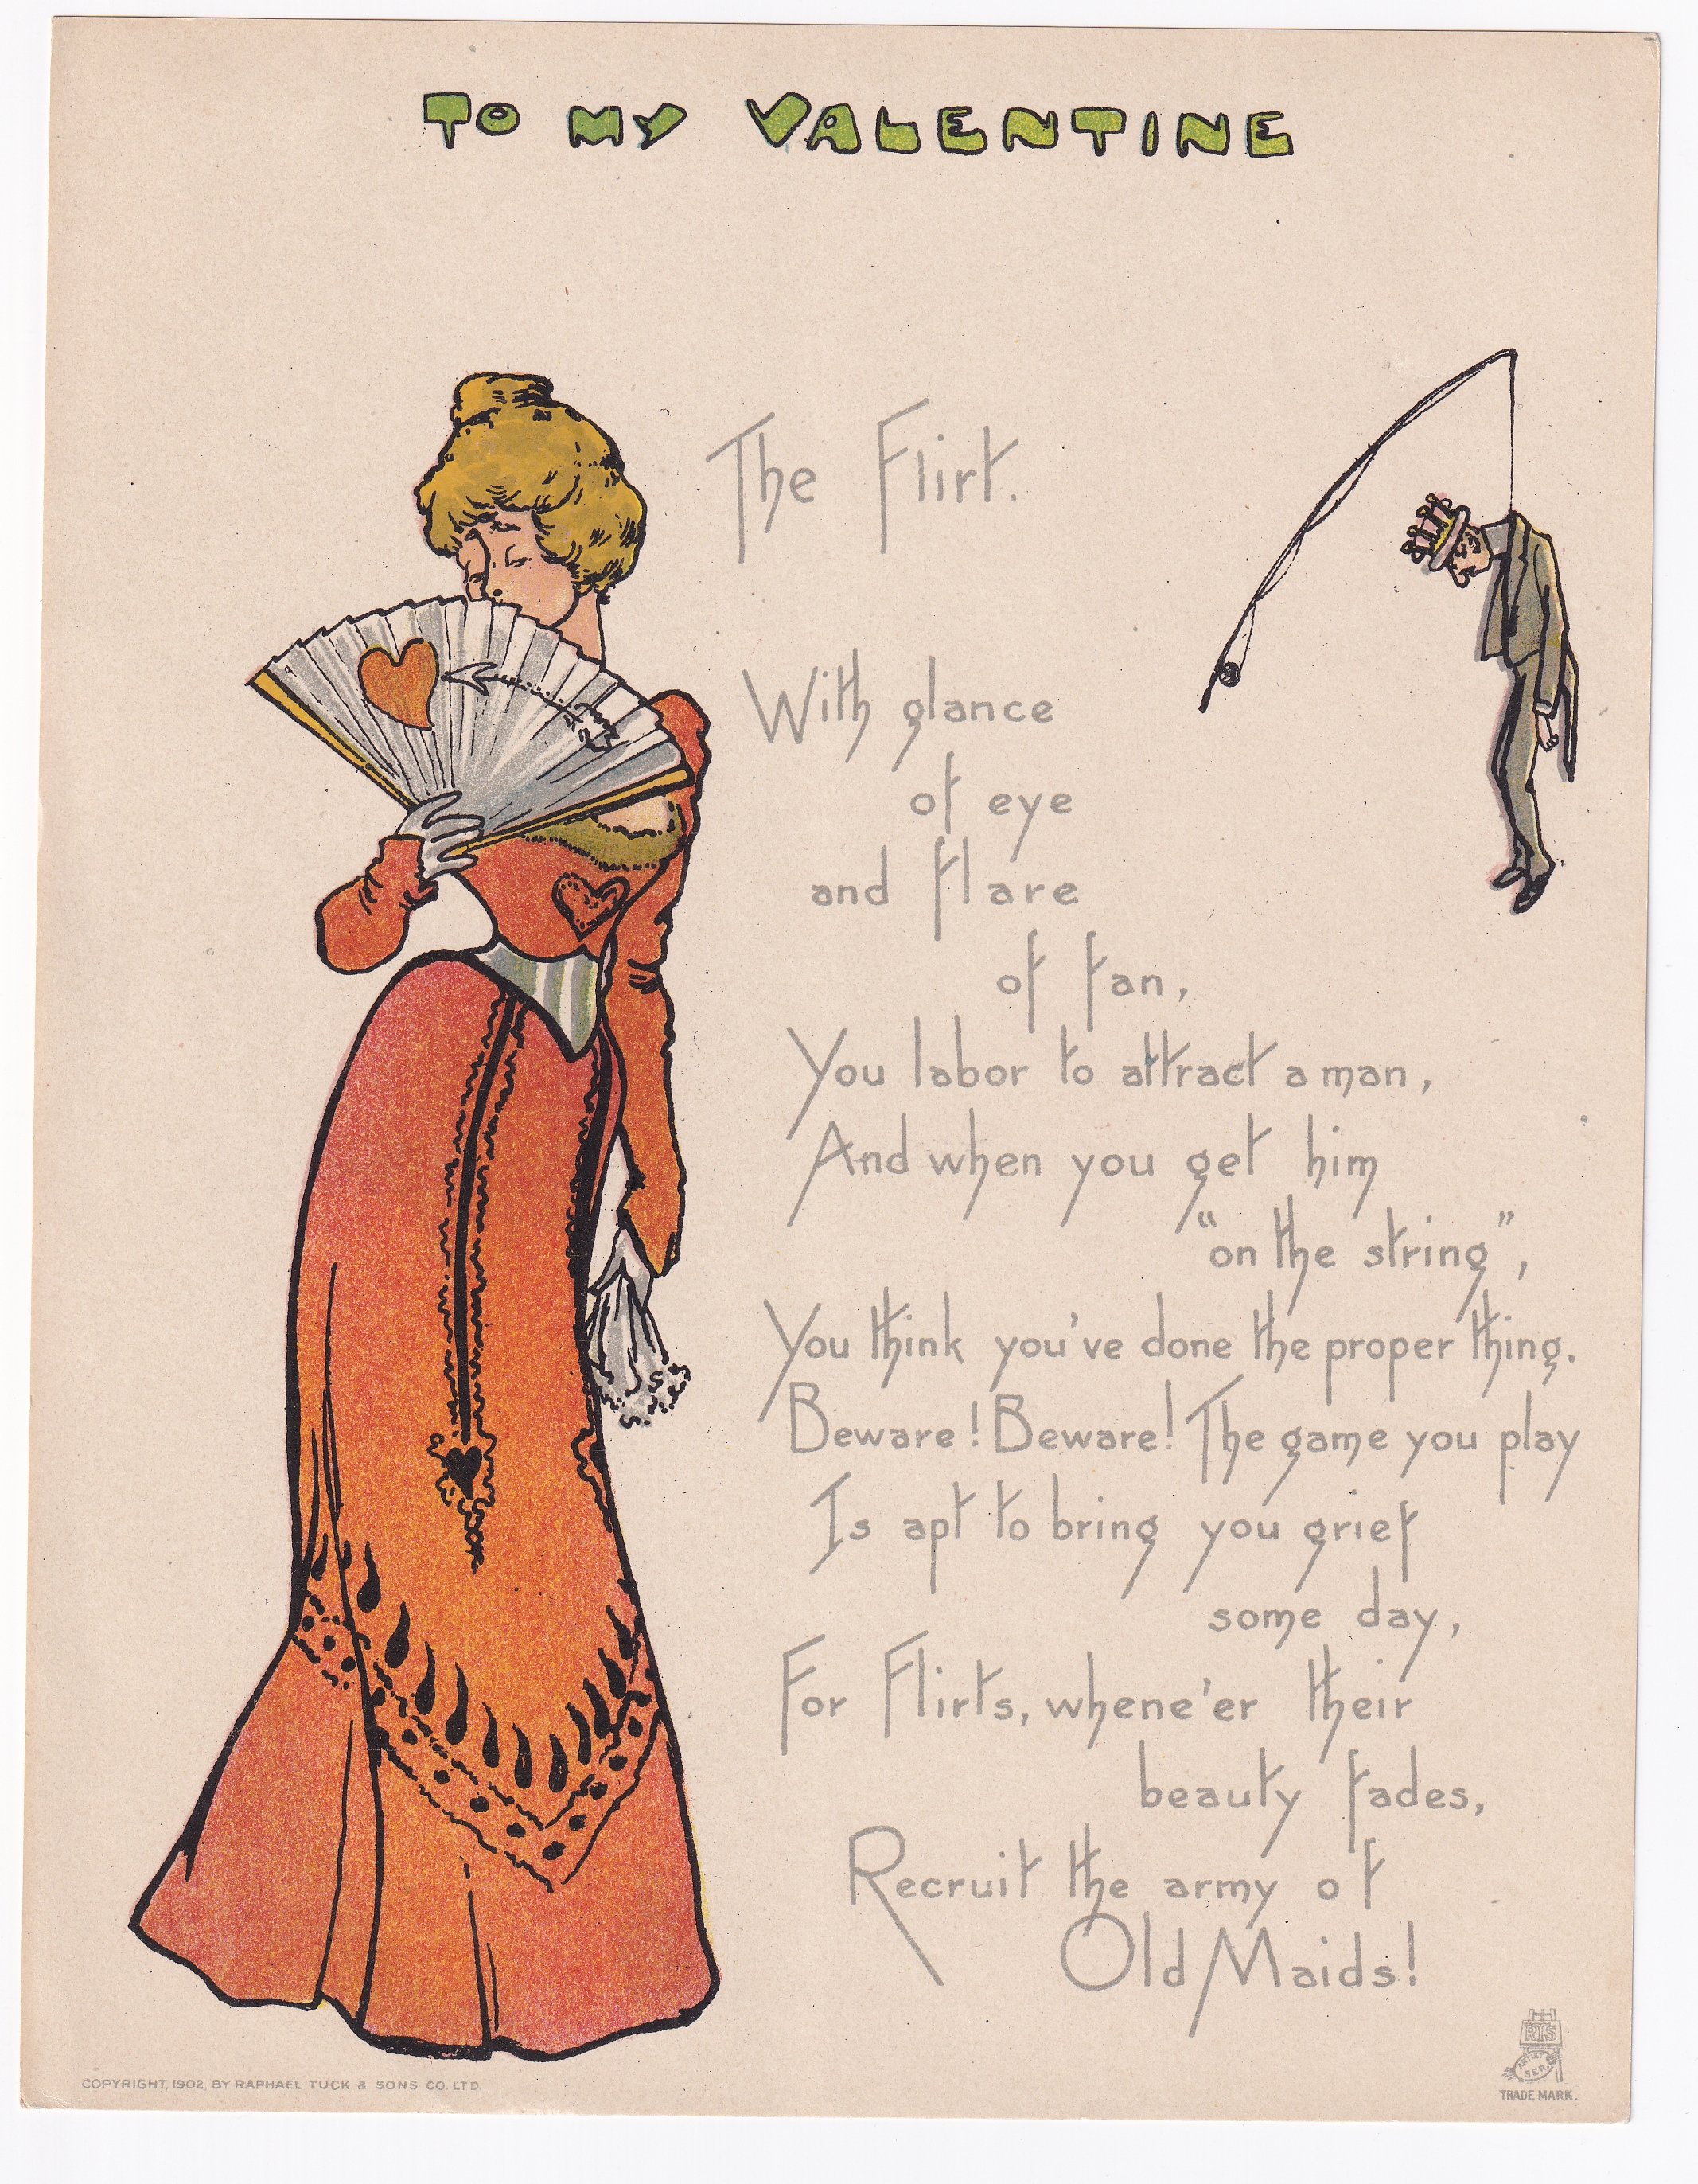 TO MY VALENTINE
The Flirt.
With glance
of eye
and flare
of fan,
You labor to attract a man,
And when you get him
"on the string",
You think you've done the proper thing.
Beware! Beware! The game you play
Is apt to bring you grief
some day,
For Flirts, whene'er their
beauty fades,
Recruit the army of
Old Maids!
COPYRIGHT, 1902, BY RAPHAEL TUCK & SONS CO. LTD.
RTS
ARTIST
SER.
TRADE MARK.